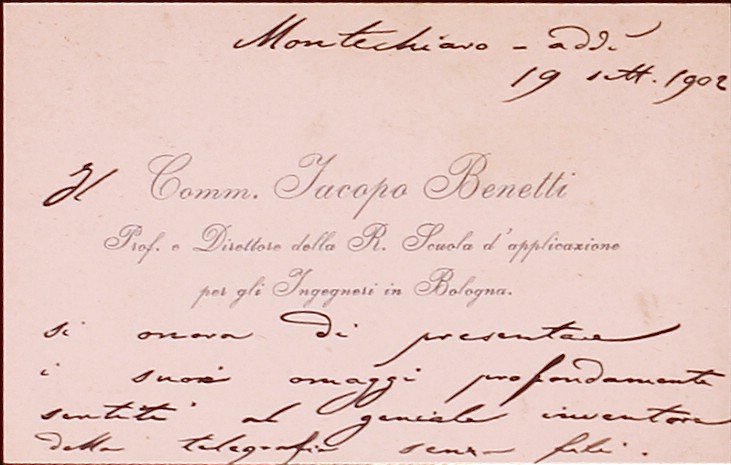 Montechiaro - addì
19 sett. 1902
Il Comm. Iacopo Benetti
Prof. e Direttore della R. Scuola d'applicazione
per gli Ingegneri in Bologna.
si onora di presentare
i suoi omaggi profondamente
sentiti al geniale inventore
della telegrafia senza fili.